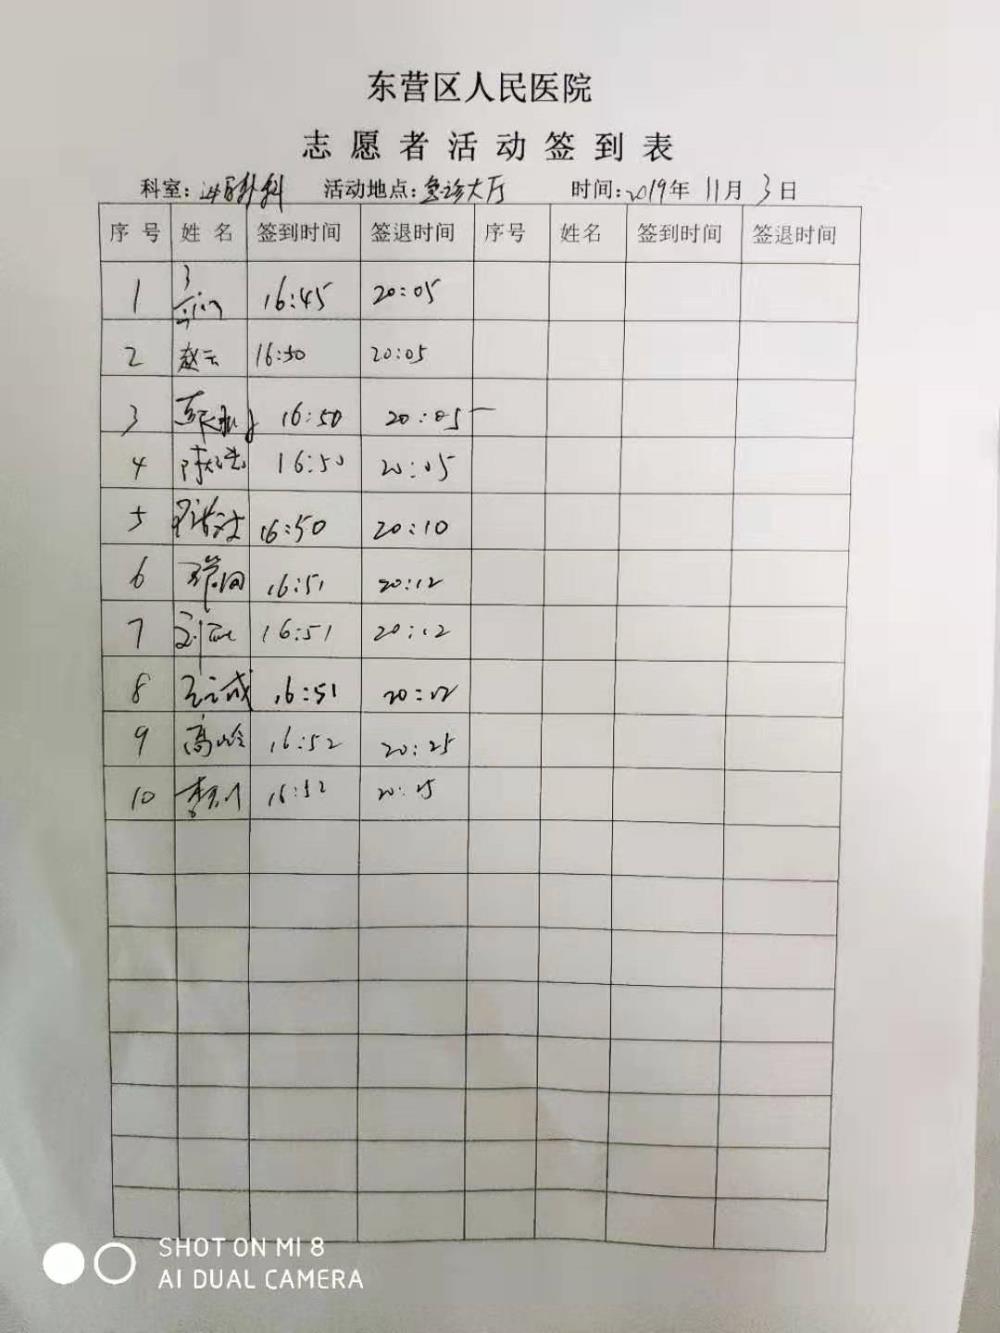 东营区人民医院
志愿者活动签到表
科室: 泌尿外科 活动地点: 急诊大厅 时间: 2019年 11月 3日
序号 姓名 签到时间 签退时间 序号 姓名 签到时间 签退时间
1 16:45 20:05
2 赵云 16:50 20:05
3 16:50 20:05
4 16:50 20:05
5 16:50 20:10
6 16:51 20:12
7 16:51 20:12
8 16:51 20:12
9 高岭 16:52 20:25
10 16:52 20:25
SHOT ON MI 8
AI DUAL CAMERA